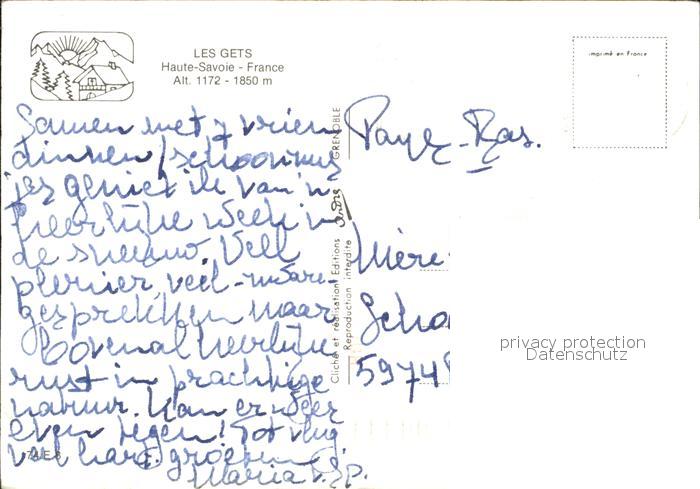 LES GETS
Haute-Savoie - France
Alt. 1172 - 1850 m
imprimé en France
Samen met 7 vrien
dinnen / schoonzus
jes geniet ik van 'n
heerlijke week in
de sneeuw. Veel
plezier, veel
gesprekken maar
bovenal heerlijke
rust in prachtige
natuur. Kan er weer
even tegen! Tot vlug
veel hart. groeten
Maria
GRENOBLE
Cliché et réalisation Editions
Reproduction interdite
Pays-Bas.
Mère
Scho
5974
privacy protection
Datenschutz